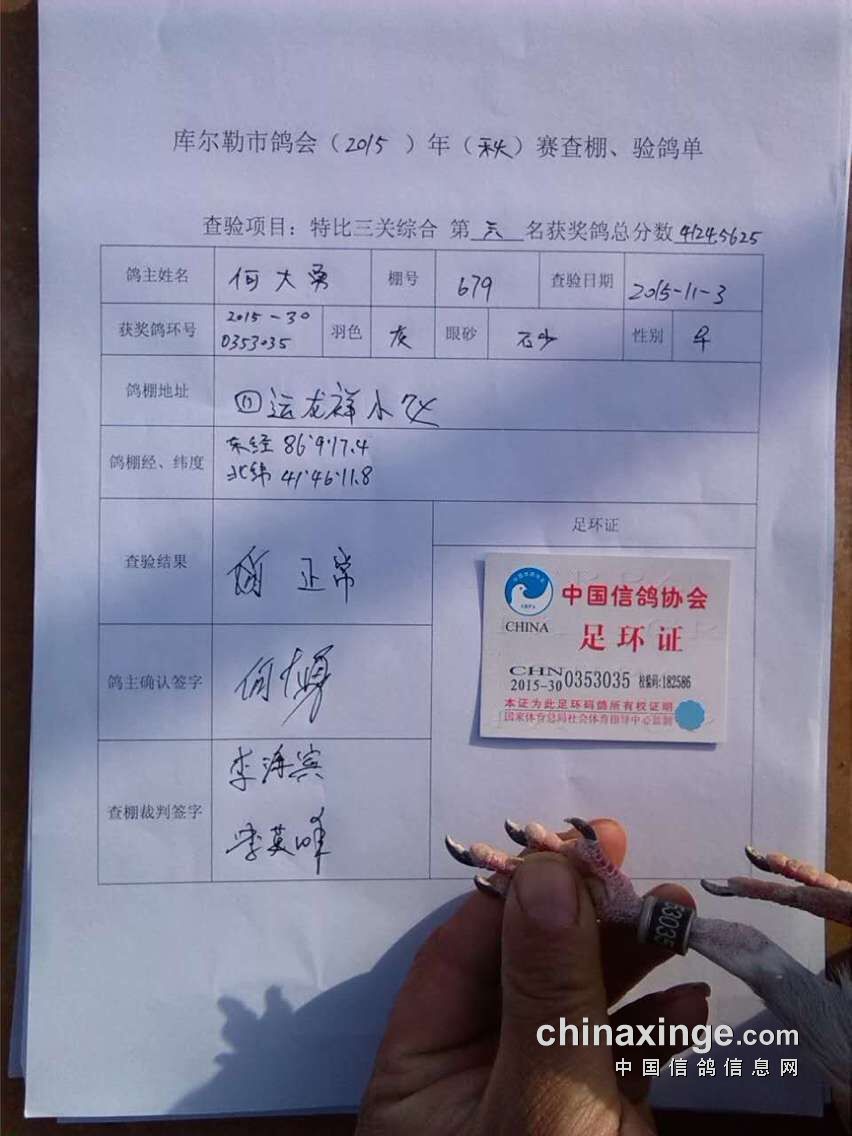 库尔勒市鸽会（2015 ）年（秋）赛查棚、验鸽单
查验项目：特比三关综合 第 六 名获奖鸽总分数 41245625
鸽主姓名 何大勇 棚号 679 查验日期 2015-11-3
获奖鸽环号 2015-30 0353035 羽色 灰 眼砂 石少 性别
鸽棚地址 运龙祥小区
鸽棚经、纬度 东经 86°9'17.4
北纬 41°46'11.8
查验结果 正常
足环证
鸽主确认签字 何大勇
查棚裁判签字 李海宾
李英峰
中国信鸽协会
CHINA
足环证
CHN
2015-30 0353035 校验码:182586
本证为此足环码鸽所有权证明
国家体育总局社会体育指导中心监制
53035
chinaxinge.com
中国信鸽信息网